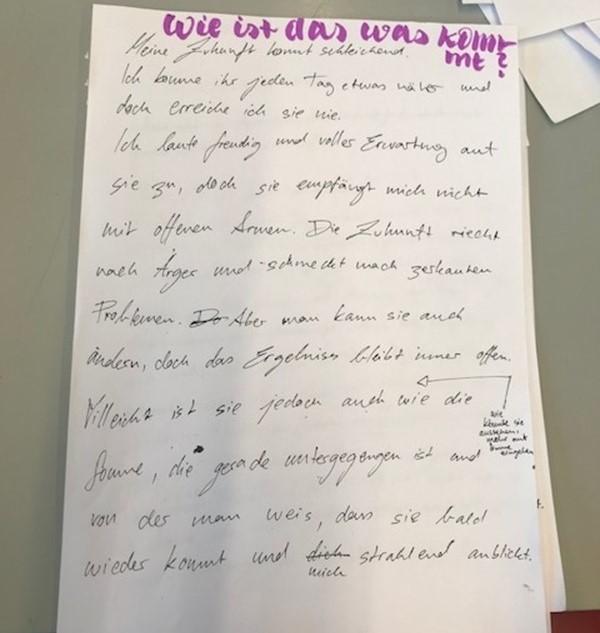 Wie ist das was kom-
mt?
Meine Zukunft kommt schleichend.
Ich komme ihr jeden Tag etwas näher und
doch erreiche ich sie nie.
Ich laufe freudig und voller Erwartung auf
sie zu, doch sie empfängt mich nicht
mit offenen Armen. Die Zukunft riecht
nach Ärger und schmeckt nach zerkauten
Problemen. Do Aber man kann sie auch
ändern, doch das Ergebniss bleibt immer offen.
Villeicht ist sie jedoch auch wie die
Sonne, die gerade untergegengen ist und
von der man weis, dass sie bald
wieder kommt und dich strahlend anblickt.
mich
wie
könnte sie
aussehen,
mehr auf
Sonne
eingehen